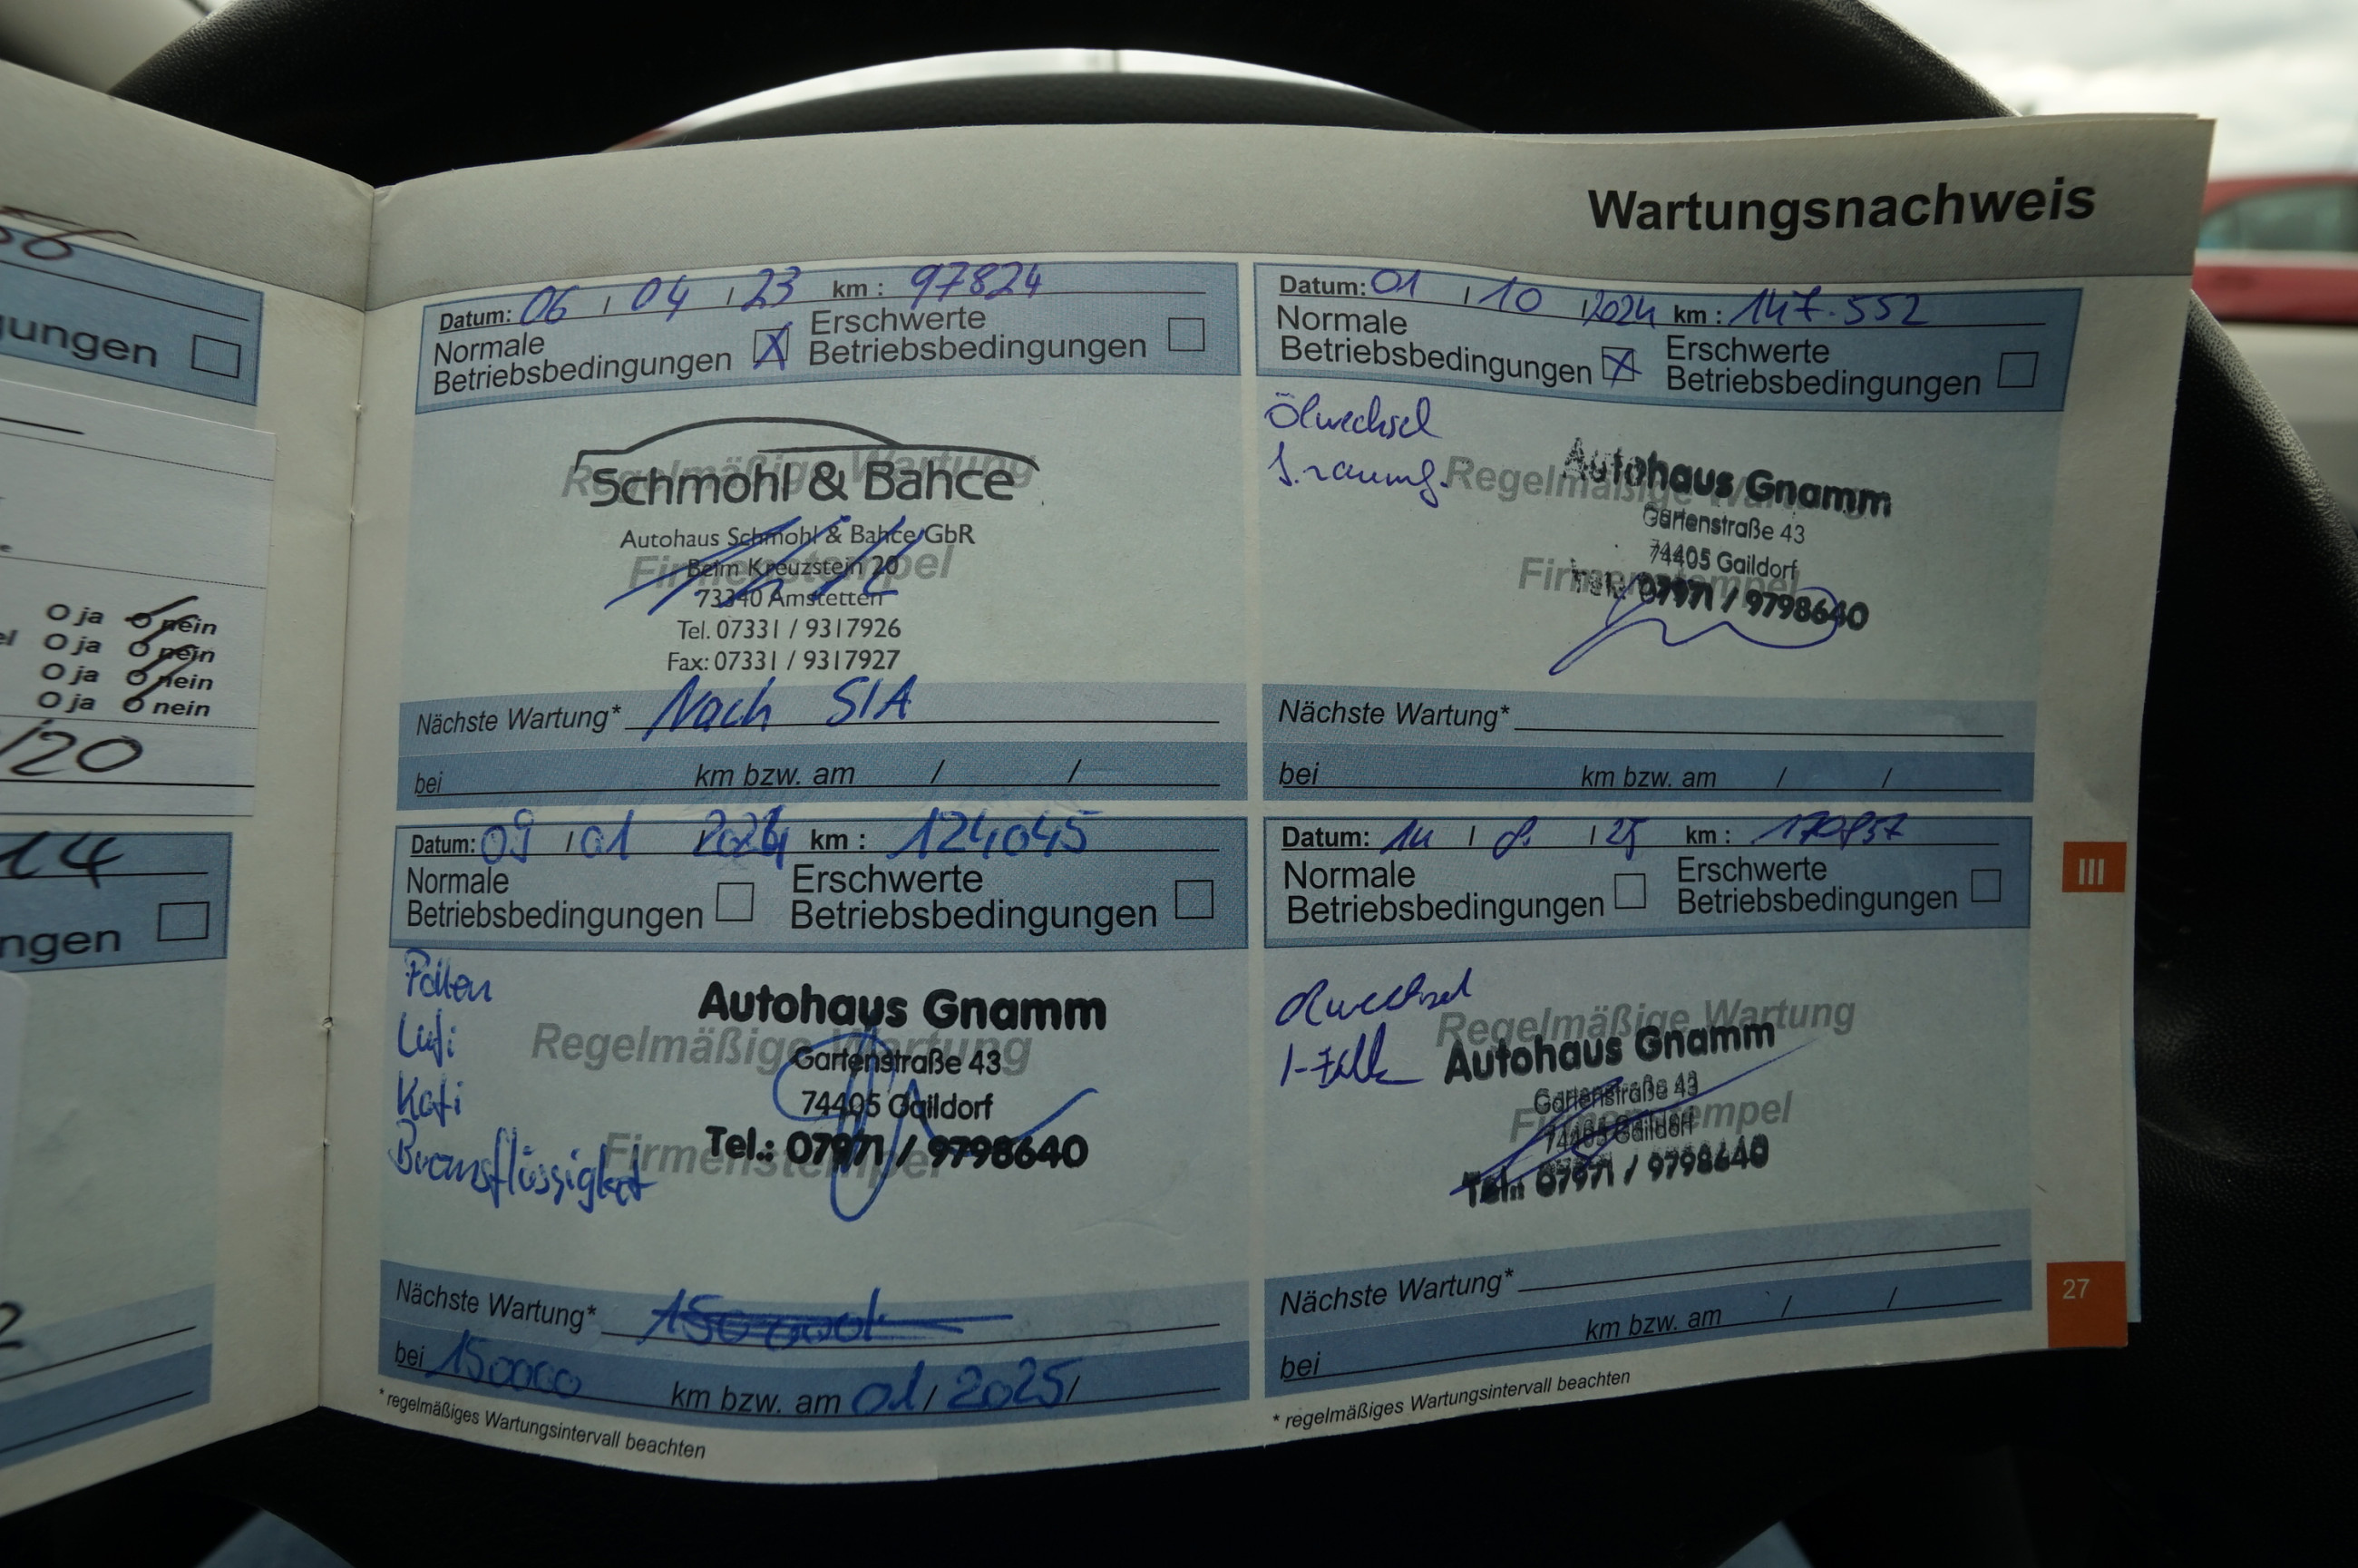 Wartungsnachweis
Datum: 06 / 04 / 23 km : 97824
Normale Betriebsbedingungen X Erschwerte Betriebsbedingungen
Regelmäßige Wartung
Schmohl & Bahce
Autohaus Schmohl & Bahce GbR
Firmenstempel
Beim Kreuzstein 20
73340 Amstetten
Tel. 07331 / 9317926
Fax: 07331 / 9317927
Nächste Wartung* Nach SIA
bei km bzw. am / /
Datum: 09 / 01 / 2024 km : 124045
Normale Betriebsbedingungen
Erschwerte Betriebsbedingungen
Pollen
Lufi
Kafi
Bremsflüssigkeit
Regelmäßige Wartung
Firmenstempel
Autohaus Gnamm
Gartenstraße 43
74405 Gaildorf
Tel.: 07971 / 9798640
Nächste Wartung* 150000
bei 150000 km bzw. am 01 / 2025 /
* regelmäßiges Wartungsintervall beachten
Datum: 01 / 10 / 2024 km : 147.552
Normale Betriebsbedingungen X Erschwerte Betriebsbedingungen
Ölwechsel
Regelmäßige Wartung
Firmenstempel
Autohaus Gnamm
Gartenstraße 43
74405 Gaildorf
Tel.: 07971 / 9798640
Nächste Wartung*
bei km bzw. am / /
Datum: 14 / 8. / 25 km :
Normale Betriebsbedingungen
Erschwerte Betriebsbedingungen
Ölwechsel
Regelmäßige Wartung
Firmenstempel
Autohaus Gnamm
Gartenstraße 43
74405 Gaildorf
Tel.: 07971 / 9798640
Nächste Wartung*
bei km bzw. am / /
* regelmäßiges Wartungsintervall beachten
III
27
O ja O nein
O ja O nein
O ja O nein
O ja O nein
/20
14